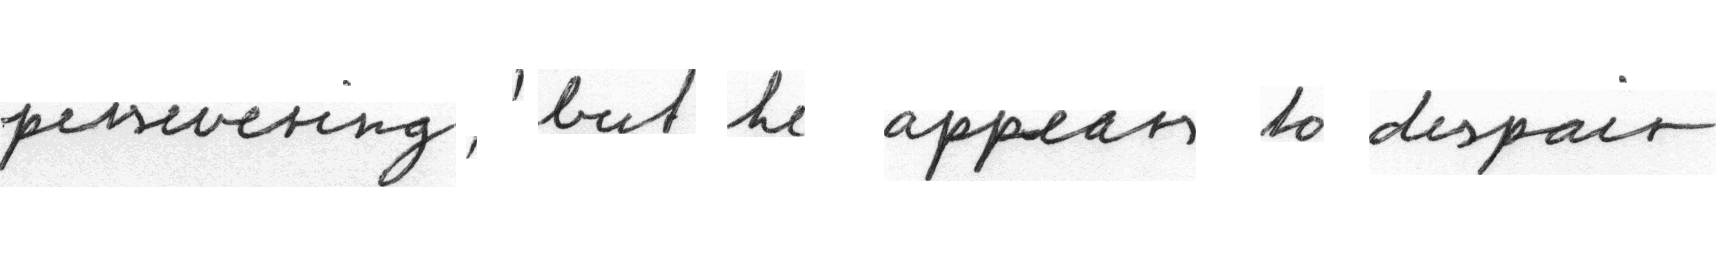 persevering, 'but he appears to despair